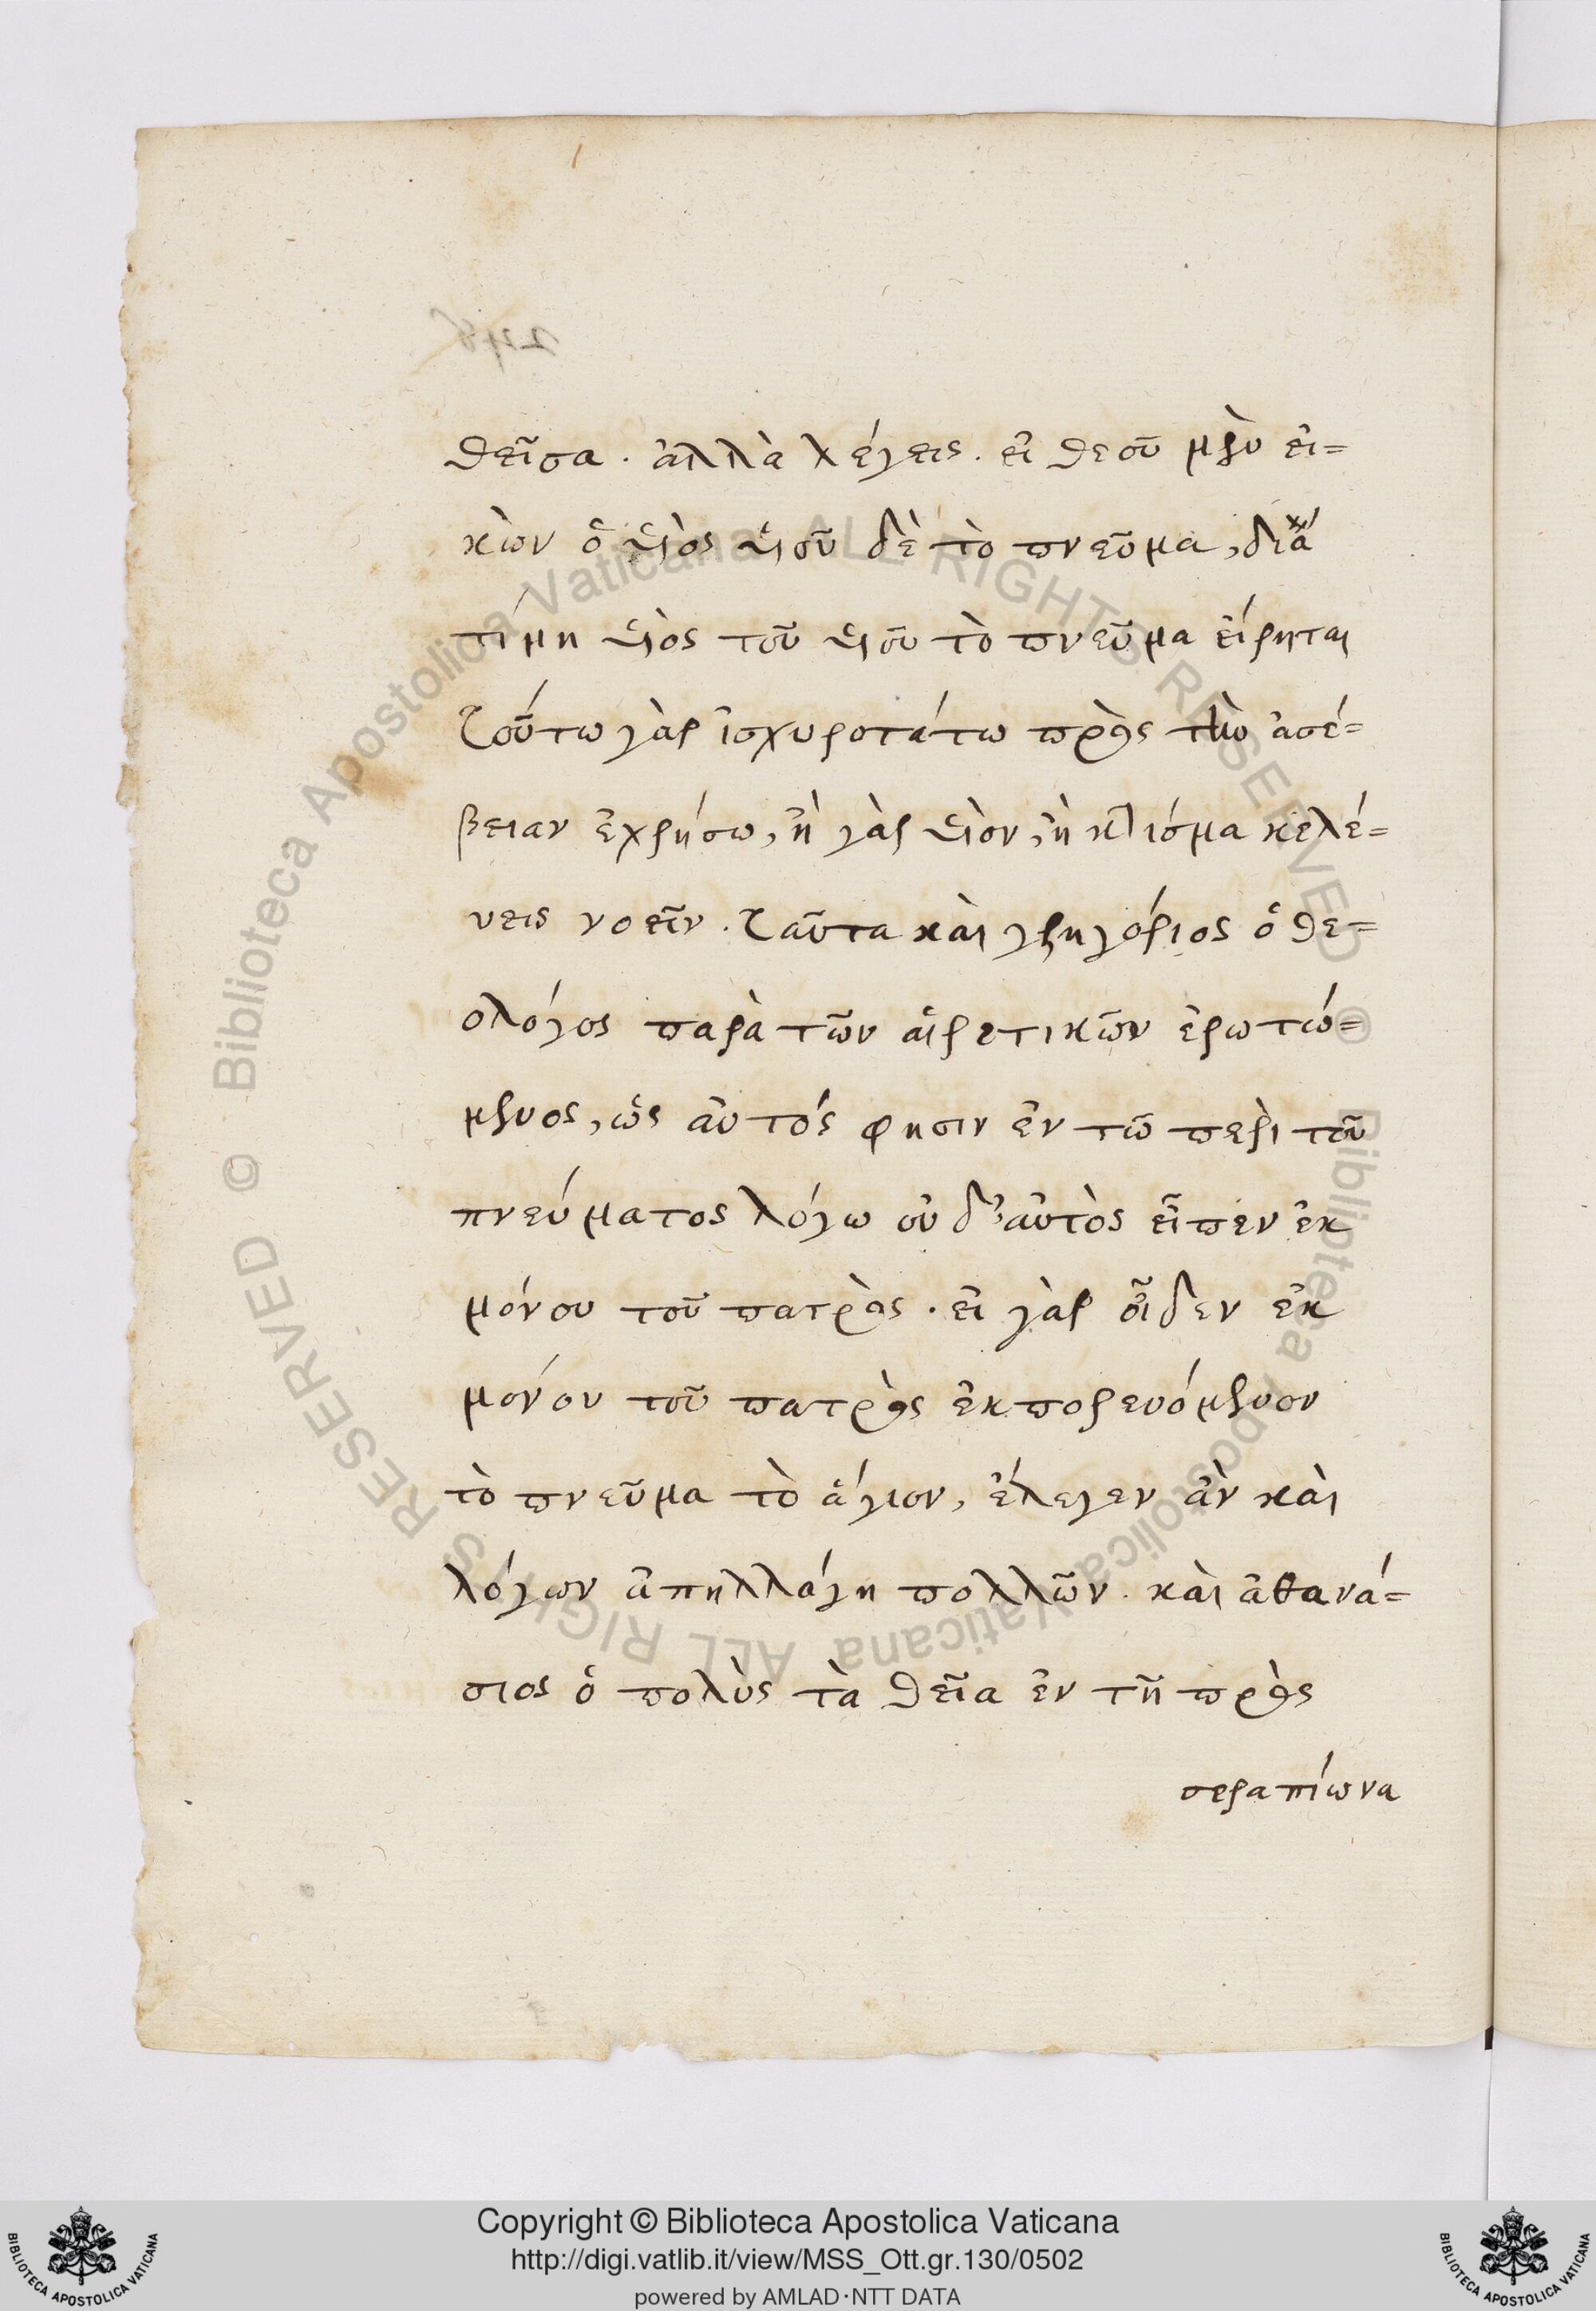 θεῖσα. ἀλλὰ λέγεις. εἰ θεοῦ μὲν εἰ=
κὼν ὁ υἱὸς υἱοῦ δὲ τὸ πνεῦμα, διὰ
τί μὴ υἱὸς τοῦ υἱοῦ τὸ πνεῦμα εἴρηται
τούτω γὰρ ἰσχυροτάτω πρὸς τὴν ἀσέ=
βειαν ἐχρήσω, ἢ γὰρ υἱὸν, ἢ κτίσμα κελέ=
υεις νοεῖν. ταῦτα καὶ γρηγόριος ὁ θε=
ολόγος παρὰ τῶν αἱρετικῶν ἐρωτώ=
μενος, ὡς αὐτός φησιν ἐν τῶ περὶ τοῦ
πνεύματος λόγω οὐδ' αὐτὸς εἶπεν ἐκ
μόνου τοῦ πατρὸς. εἰ γὰρ οἶδεν ἐκ
μόνου τοῦ πατρὸς ἐκπορευόμενον
τὸ πνεῦμα τὸ ἅγιον, ἔλεγεν ἂν καὶ
λόγων ἀπηλλάγη πολλῶν. καὶ ἀθανά=
σιος ὁ πολὺς τὰ θεῖα ἐν τῆ πρὸς
σεραπίωνα
Copyright © Biblioteca Apostolica Vaticana
http://digi.vatlib.it/view/MSS_Ott.gr.130/0502
powered by AMLAD·NTT DATA
© Biblioteca Apostolica Vaticana ALL RIGHTS RESERVED
© Biblioteca Apostolica Vaticana ALL RIGHTS RESERVED
BIBLIOTECA APOSTOLICA VATICANA
BIBLIOTECA APOSTOLICA VATICANA